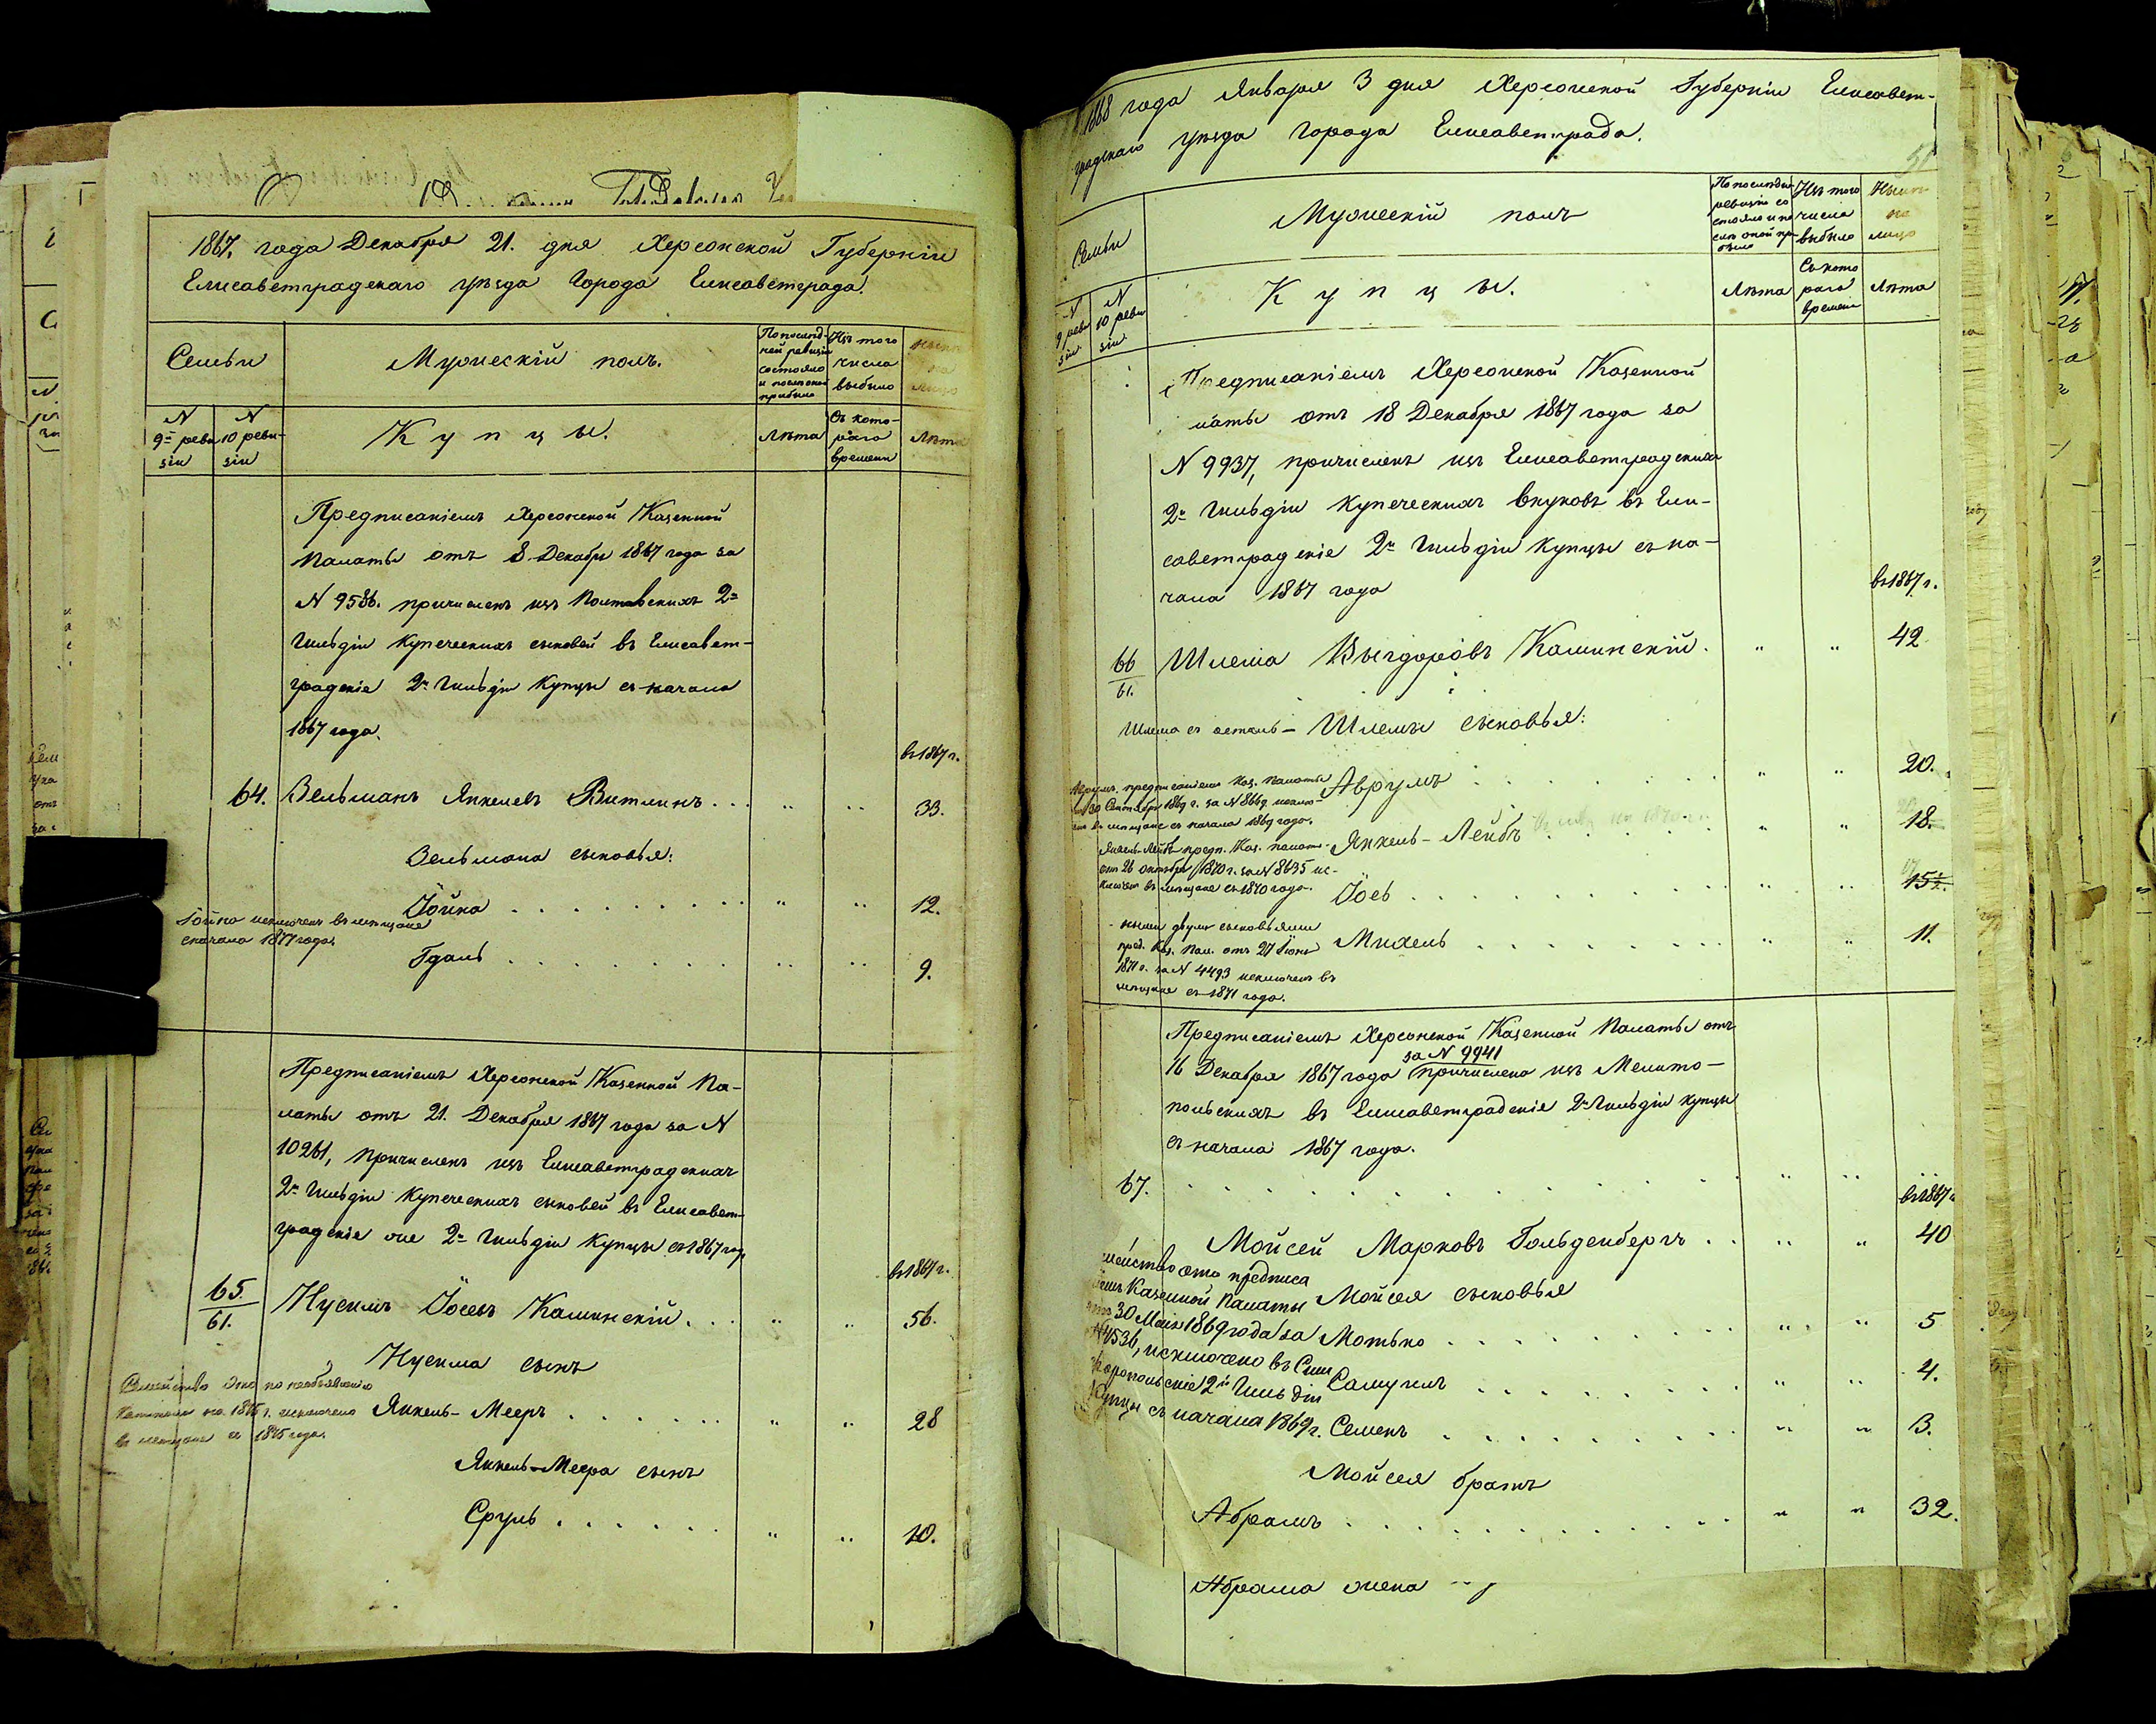 1867. года Декабря 21. дня Херсонской Губернiи
Елисаветградскаго уѣзда Города Елисаветграда.
Семьи
Мужескiй полъ.
По послѣд-
ней ревизiи
состояло
и послѣ оной
прибыло
Изъ того
числа
выбыло
Нынѣ
на
лицо
N
9й реви
зiи
N
10 реви-
зiи
Купцы.
Лѣта
Съ кото-
раго
времени
Лѣта
Предписанiемъ Херсонской Казенной
Палаты отъ 8 Декабря 1867 года за
N 9586. причисленъ изъ Полтавскихъ 2й
Гильдiи Купеческихъ сыновей въ Елисавет-
градскiе 2й Гильдiи Купцы съ начала
1867 года.
въ 1867 г.
64. Зельманъ Янкелевъ Витлинъ . . . „ „ 33.
Зельмана сыновья:
Iойна . . . . . . . . „ „ 12.
Iойна исключенъ въ мѣщане
сначала 1877 года.
Гдаль . . . . . . . . „ „ 9.
Предписанiемъ Херсонской Казенной Па-
латы отъ 21. Декабря 1867 года за N
10261, причисленъ изъ Елисаветградскихъ
2й Гильдiи Купеческихъ сыновей въ Елисавет-
градскiе же 2й Гильдiи Купцы съ 1867 года
въ 1867 г.
65/61. Нусимъ Iосевъ Калинскiй . . . „ „ 56.
Нусима сынъ
Семейство это по необъявленiю
Капитала на 1875 г. исключено
въ мѣщане съ 1875 года.
Янкель-Мееръ . . . . . . „ „ 28
Янкель-Меера сынъ
Сруль . . . . . . „ „ 10.
1868 года Января 3 дня Херсонской Губернiи Елисавет-
градскаго уѣзда Города Елисаветграда.
51
Семьи
Мужескiй полъ
По послѣдн.
ревизiи со
стояло и по
слѣ оной пр-
было
Изъ того
числа
выбыло
Нынѣ
на
лицо
N
9 реви
зiи
N
10 реви
зiи
Купцы.
Лѣта
Съ кото
раго
времени
Лѣта
Предписанiемъ Херсонской Казенной
латы отъ 18 Декабря 1867 года за
N 9937, причисленъ изъ Елисаветградскихъ
2й Гильдiи Купеческихъ внуковъ въ Ели-
саветградскiе 2й Гильдiи Купцы съ на-
чала 1867 года
въ 1867 г.
66/61. Шлема Калинскiй. „ „ 42
Шлема съ осталь- Шлемы сыновья:
Аврумъ . . . . . . „ „ 20.
Аврумъ, предписанiемъ Каз. Палаты
30 Сентября 1869 г. за N 8669 исклю-
ченъ въ мѣщане съ начала 1869 года.
Янкель-Лейбъ . . . . . „ „ 18.
Янкель-Лейбъ предп. Каз. палаты
отъ 26 октября 1870 г. за N 8635 ис-
ключенъ въ мѣщане съ 1870 года.
Iосъ . . . . . . . . „ „ 15
ными двумя сыновьями
пред. Каз. Пал. отъ 27 Iюня
1871 г. за N 4493 исключенъ въ
мѣщане съ 1871 года.
Михель . . . . . . . . „ „ 11.
Предписанiемъ Херсонской Казенной Палаты отъ
16 Декабря 1867 года за N 9941 причислено изъ Мелито-
польскихъ въ Елисаветградскiе 2й Гильдiи купцы
съ начала 1867 года.
67.
въ 1867 г.
Мойсей Марковъ Гольденбергъ . . „ „ 40
Мойсея сыновья
семейство это предписа
нiемъ Казенной Палаты
отъ 30 Мая 1869 года за
N 4536, исключено въ Сим
феропольскiе 2й Гильдiи
Купцы съ начала 1869 г.
Мотько . . . . . . . . „ „ 5
Самуилъ . . . . . . . „ „ 4.
Семенъ . . . . . . . . „ „ 3.
Мойсея братъ
Абрамъ . . . . . . . . „ „ 32.
Абрама жена